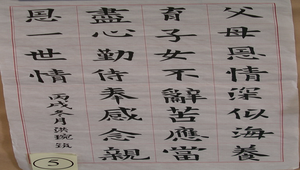 父母恩情深似海養
育子女不辭苦應當
盡心勤侍奉感念親
恩一世情
丙戌冬月洪琬
5